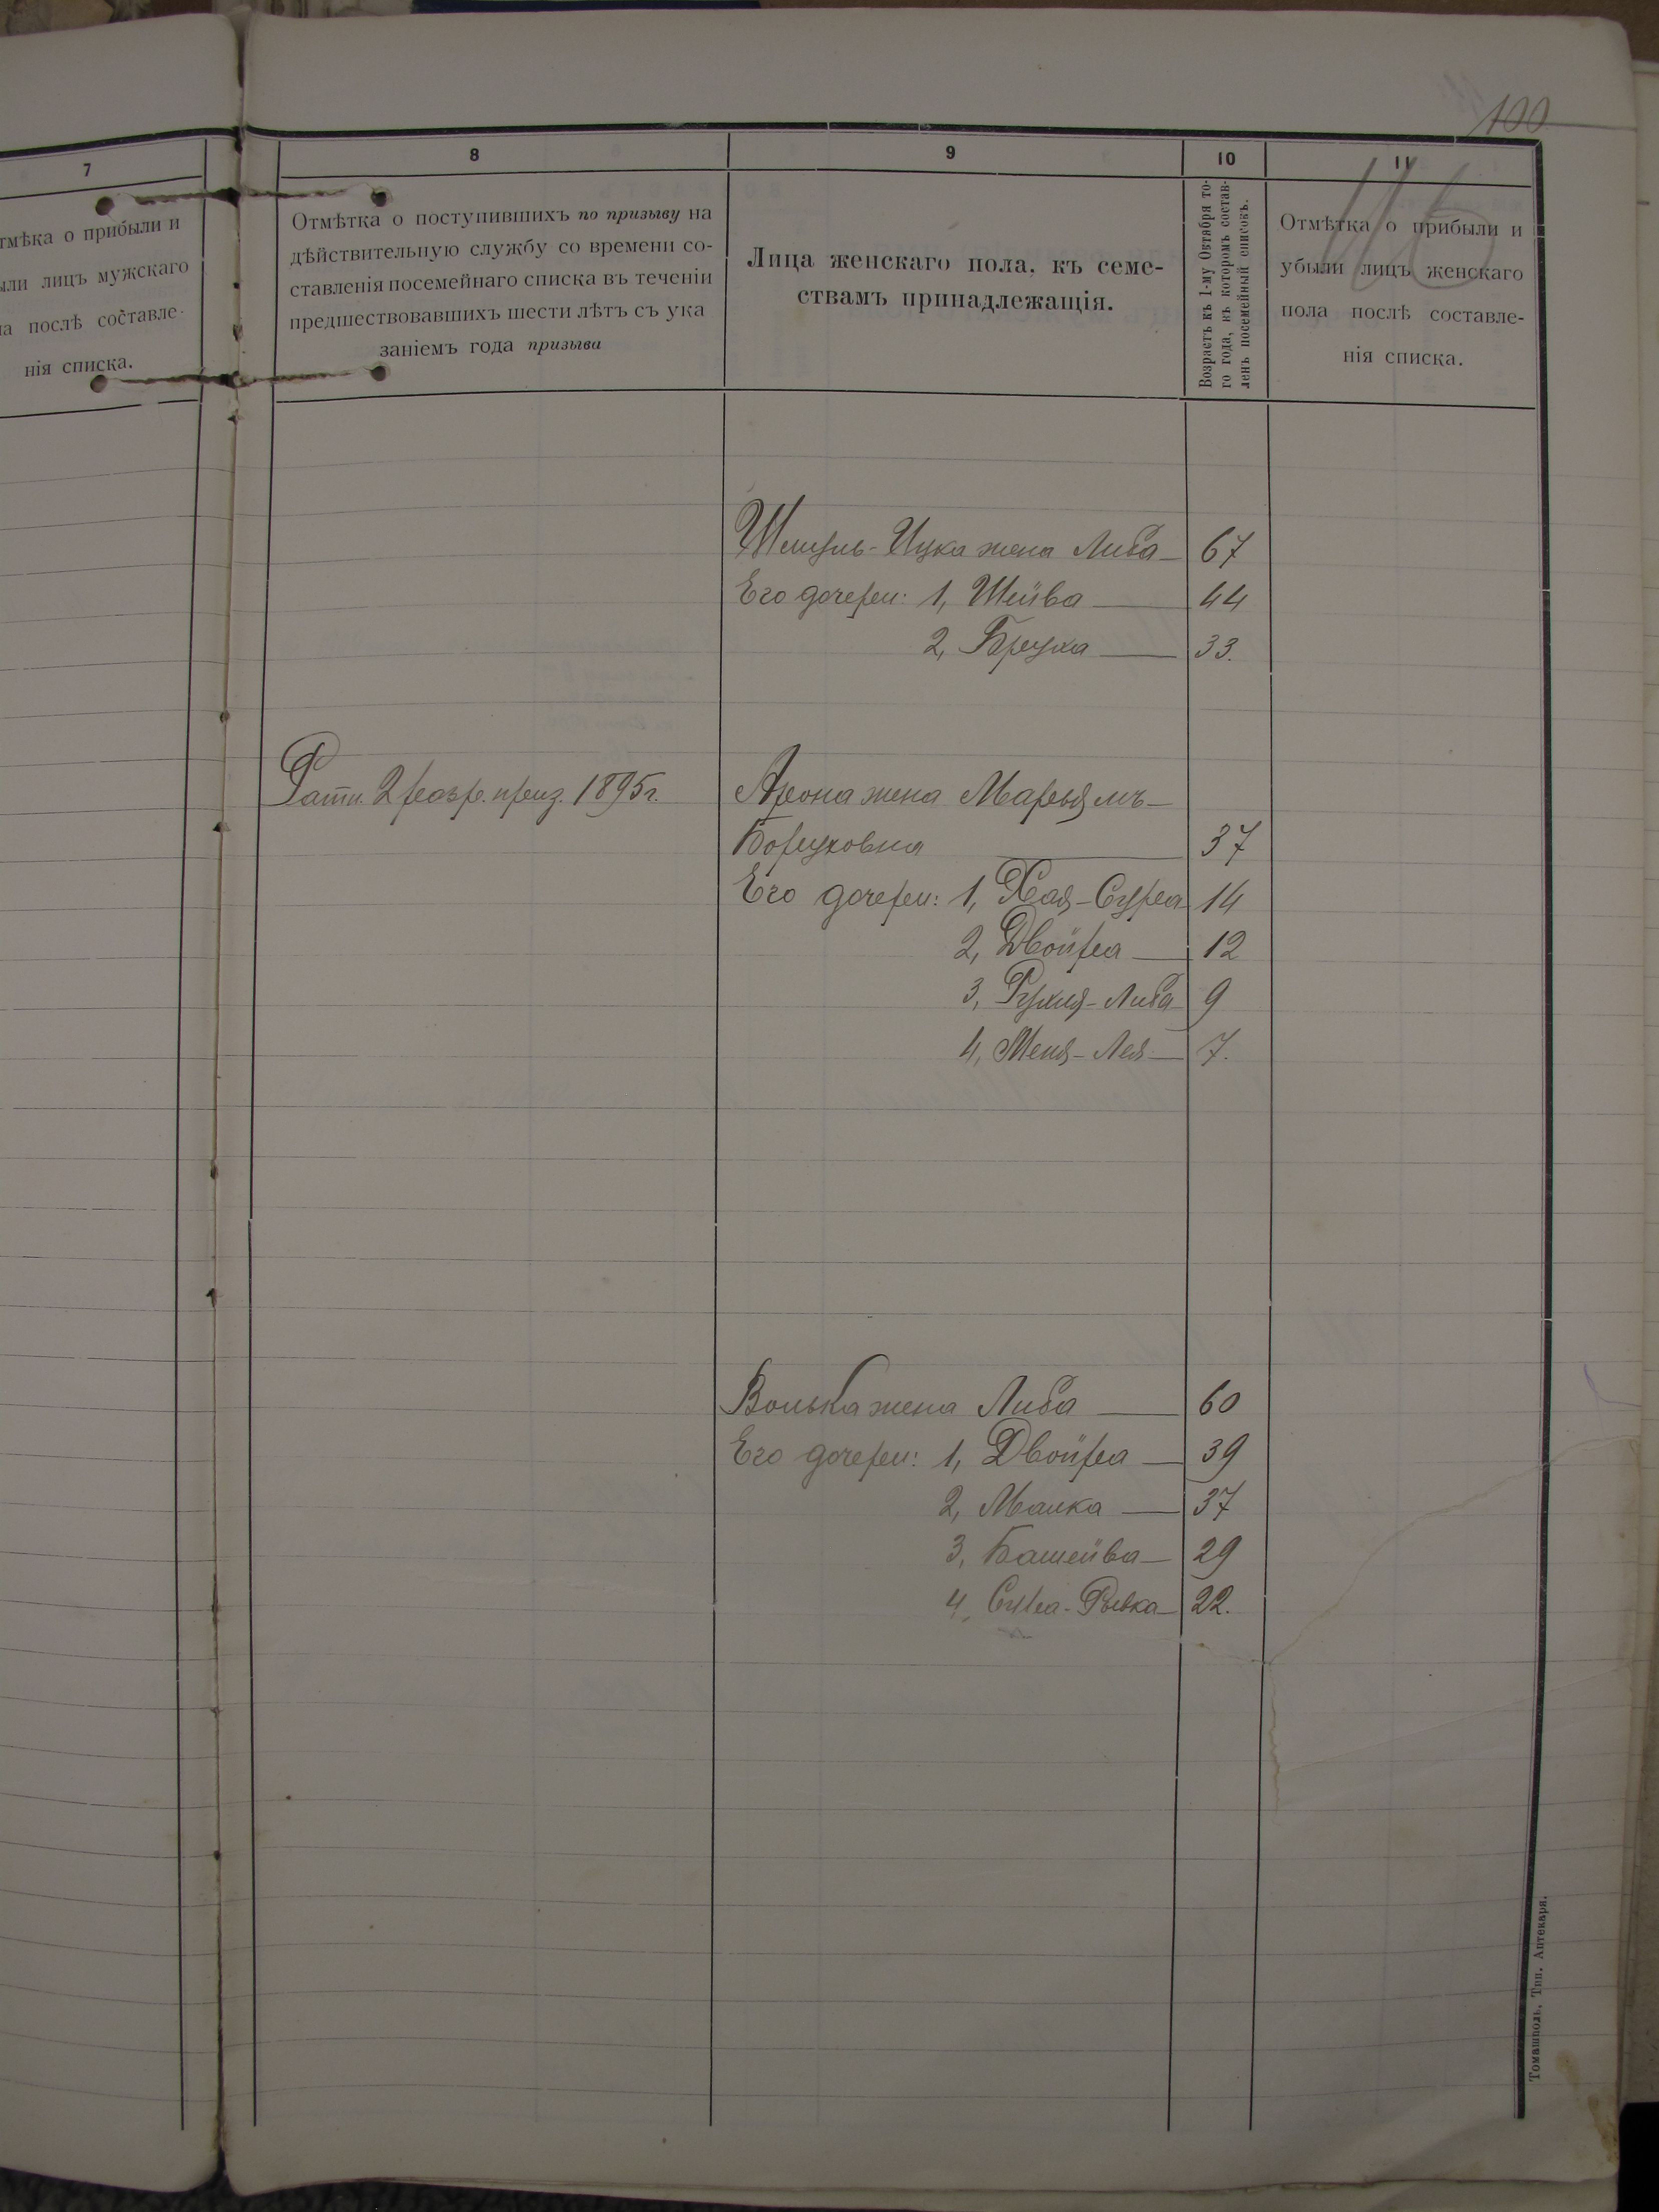 100
7
8
9
10
11
115
тмѣка о прибыли и
ыли лицъ мужскаго
ла послѣ составле-
нія списка.
Отмѣтка о поступившихъ по призыву на
дѣйствительную службу со времени со-
ставленія посемейнаго списка въ теченіи
предшествовавшихъ шести лѣтъ съ ука
заніемъ года призыва
Лица женскаго пола, къ семе-
ствамъ принадлежащія.
Возрастъ къ 1-му Октября то-
го года, въ которомъ состав-
ленъ посемейный списокъ.
Отмѣтка о прибыли и
убыли лицъ женскаго
пола послѣ составле-
нія списка.
Шмуль-Ицка жена Либа 67
Его дочери: 1, Шейва 44
2, Бруха 33.
Ратн. 2 разр. приз. 1895 г.
Арона жена Марьямъ-
Боруховна 37
Его дочери: 1, Хая-Сура 14
2, Двойра 12
3, Рухля-Либа 9
4, Меня-Лея 7.
Волька жена Либа 60
Его дочери: 1, Двойра 39
2, Малка 37
3, Башейва 29
4, Сура-Ривка 22.
Томашполь. Тип. Аптекаря.